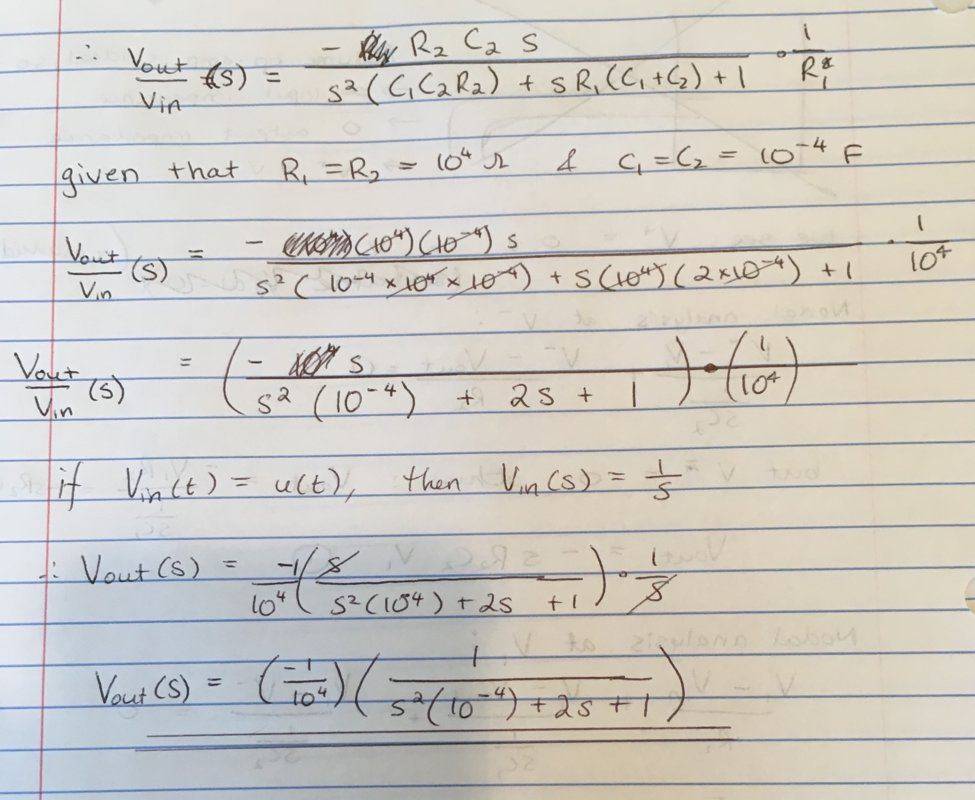 ∴ Vout/Vin (s) = - R₂ C₂ s / s² (C₁C₂R₂) + s R₁(C₁+C₂) + 1 · 1/R₁
given that R₁ = R₂ = 10⁴ Ω & C₁ = C₂ = 10⁻⁴ F
Vout/Vin (s) = - (10⁴)(10⁻⁴) s / s² (10⁻⁴ × 10⁴ × 10⁻⁴) + s (10⁴)(2×10⁻⁴) + 1 · 1/10⁴
Vout/Vin (s) = (- s / s² (10⁻⁴) + 2s + 1) · (1/10⁴)
if Vin(t) = u(t), then Vin(s) = 1/s
∴ Vout(s) = -1/10⁴ (s / s²(10⁻⁴) + 2s + 1) · 1/s
Vout(s) = (-1/10⁴) (1 / s²(10⁻⁴) + 2s + 1)